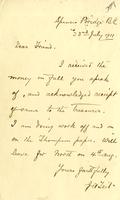 Spences Bridge B.C.
23rd July 1911
Dear Friend.
I received the
money in full you speak
of, and acknowledged receipt
of same to the Treasurer.
I am doing work off and on
on the Thompson paper. Will
leave for North on 4th Aug.
Yours faithfully
J A Teit